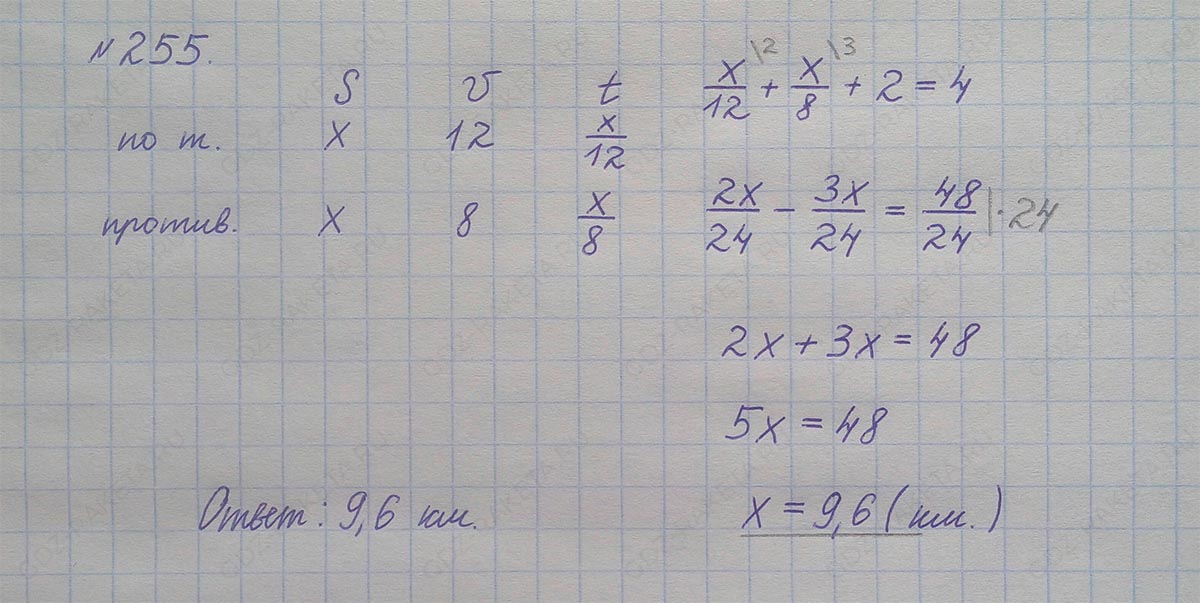 №255.
S v t
по т. x 12 x/12
против. x 8 x/8
x/12 \2 + x/8 \3 + 2 = 4
2x/24 - 3x/24 = 48/24 |·24
2x + 3x = 48
5x = 48
x = 9,6 (км.)
Ответ: 9,6 км.
GDZ-RAKETA.RU